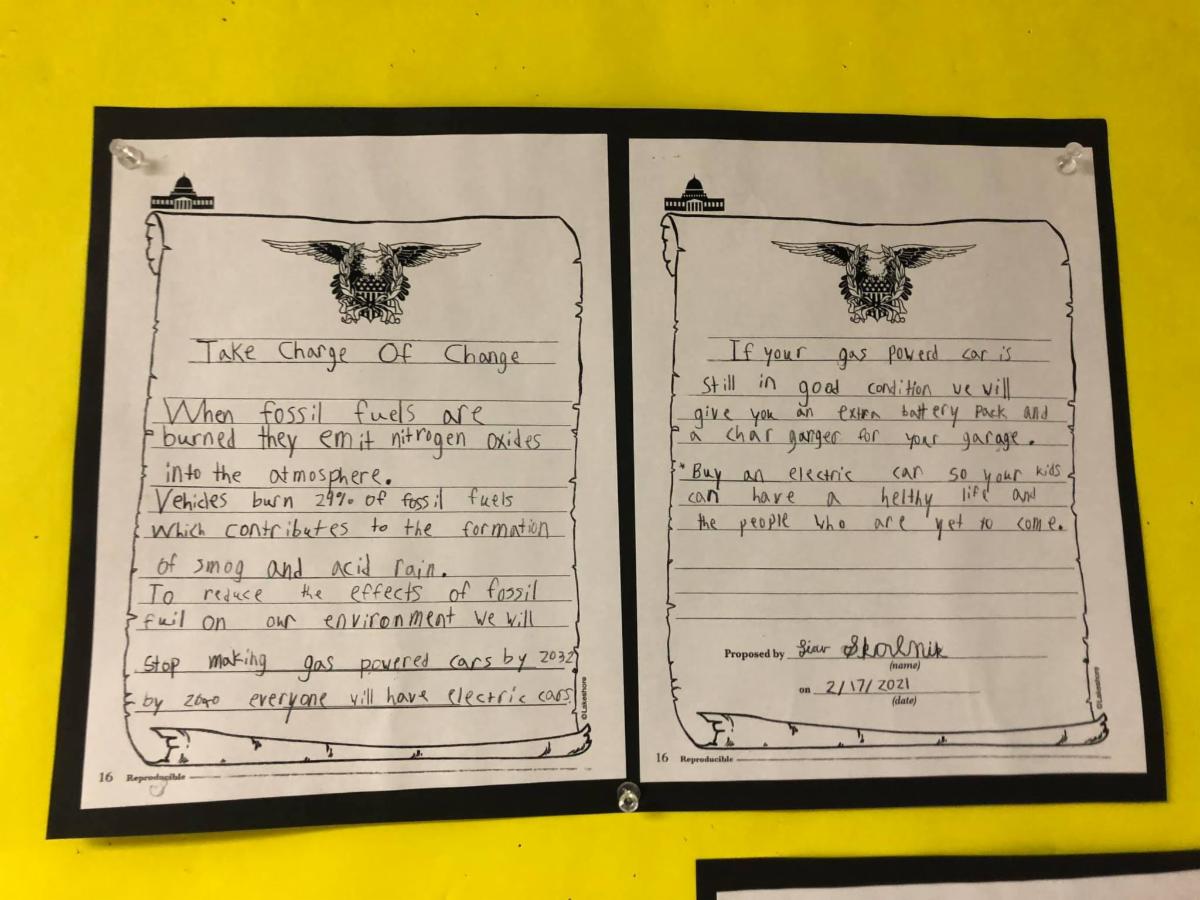 Take Charge Of Change
When fossil fuels are
burned they emit nitrogen oxides
into the atmosphere.
Vehicles burn 29% of fossil fuels
which contributes to the formation
of smog and acid rain.
To reduce the effects of fossil
fuil on our environment we will
stop making gas powered cars by 2032
by 2040 everyone will have electric cars.
©Lakeshore
16 Reproducible
If your gas powerd car is
still in good condition we will
give you an extra battery pack and
a char ganger for your garage.
*Buy an electric car so your kids
can have a helthy life and
the people who are yet to come.
Proposed by Skolnik
(name)
on 2/17/2021
(date)
©Lakeshore
16 Reproducible